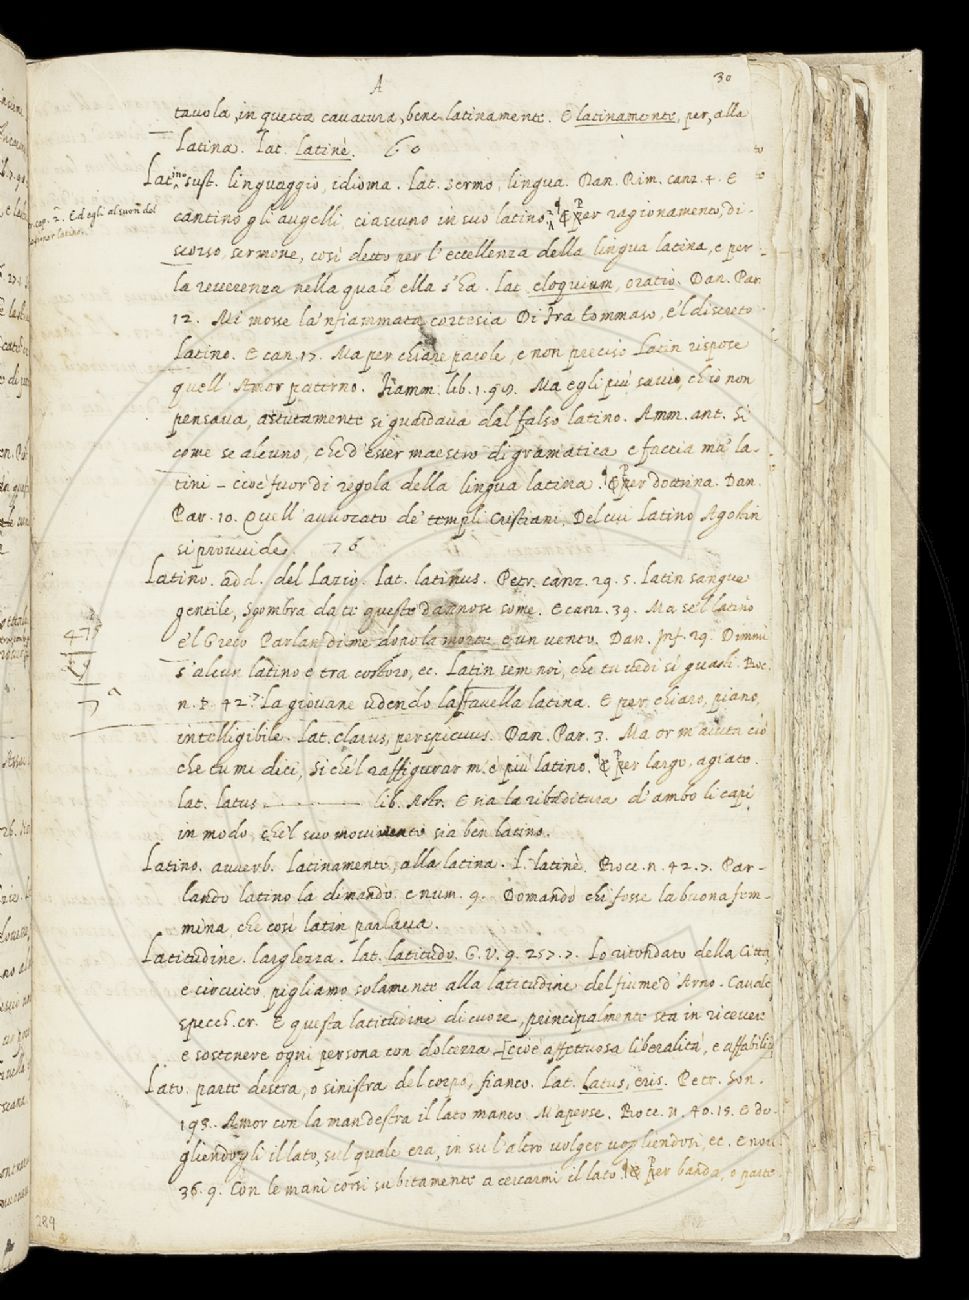 A 30
tavola, in questa cavatura, bene latinamente. E latinamente, per, alla
latina. Lat. latinè. 60
Latino sust. linguaggio, idioma. Lat. sermo, lingua. Dan. Rim. canz. 4. E
cantino gli augelli, ciascuno in suo latino. ¶ Per ragionamento, di-
cap. 2. Ed egli al suon del
latino.
scorso, sermone, così detto per l'eccellenza della lingua latina, e per
la reverenza nella quale ella s'ha. Lat. eloquium, oratio. Dan. Par.
12. Mi mosse la 'nfiammata cortesia Di Fra Tommaso, e 'l discreto
latino. E can. 17. Ma per chiare parole, e non preciso Latin rispose
quell' Amor paterno. Fiamm. lib. 1. 99. Ma egli più savio, ch'io non
pensava, astutamente si guardava dal falso latino. Amm. ant. Si
come se alcuno, che d'esser maestro di gramatica e faccia ma' la-
tini - cioè fuor di regola della lingua latina. ¶ Per dottrina. Dan.
Par. 10. Quell' avvocato de' templi Cristiani, Del cui latino Agostin
si provvide. 76
Latino. add. del Lazio. Lat. latinus. Petr. canz. 29. 5. Latin sangue
gentile, Sgombra da te queste dannose some. E canz. 39. Ma se 'l latino
e 'l Greco Parlan di me dopo la morte è un vento. Dan. Inf. 29. Dimmi
47
s'alcun latino è tra costoro, ec. Latin sem noi, che tu vedi sì guasti. Boc.
n. 42. La giovane udendo la favella latina. E per chiaro, piano,
7
intelligibile. Lat. clarus, perspicuus. Dan. Par. 3. Ma or m'aiuta ciò
che tu mi dici, Sì che 'l raffigurar m'è più latino. ¶ Per largo, agiato.
lat. latus lib. Astr. E sia la ribaditura d'ambo li capi
in modo, che 'l suo movimento sia ben latino.
Latino. avverb. latinamente, alla latina. L. latinè. Bocc. n. 42. 7. Par-
lando latino la dimandò. e num. 9. Domandò chi fosse la buona fem-
mina, che così latin parlava.
Latitudine. larghezza. Lat. latitudo. G. V. 9. 257. 7. Lo ritondato della Città
e circuito pigliamo solamente alla latitudine del fiume d'Arno. Cavalc.
specch. cr. E questa latitudine di cuore, principalmente sta in ricevere
e sostenere ogni persona con dolcezza - [cioè affettuosa liberalità, e affabilità
Lato. parte destra, o sinistra del corpo, fianco. Lat. latus, eris. Petr. Son.
195. Amor con la man destra il lato manco M'aperse. Bocc. n. 40. 15. E do-
gliendogli il lato, sul quale era, in su l'altro volger vogliendosi, ec. e nov.
36. 9. Con le mani corsi subitamente a cercarmi il lato. ¶ Per banda, o parte.
289